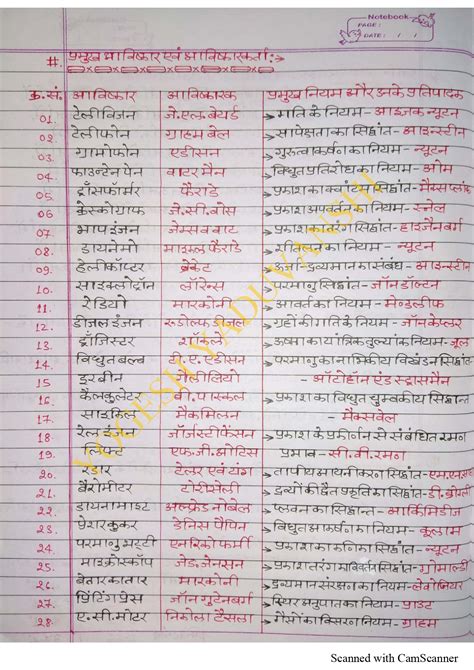 Notebook
PAGE:
DATE: / /
#. प्रमुख आविष्कार एवं आविष्कारकर्ता :→
क्र.सं. आविष्कार आविष्कारक प्रमुख नियम और उनके प्रतिपादक
01. टेलीविजन जे.एल.बेयर्ड →गति के नियम - आइजक न्यूटन
02. टेलीफोन ग्राहम बेल →सापेक्षता का सिद्धांत - आइन्स्टीन
03. ग्रामोफोन एडीसन →गुरुत्वाकर्षण का नियम - न्यूटन
04. फाउन्टेन पेन वाटर मैन →विधुत प्रतिरोध का नियम - ओम
05. ट्राँसफॉर्मर फैराडे →प्रकाश का क्वांटम सिद्धांत - मैक्स प्लांक
06 क्रेस्कोग्राफ जे.सी.बोस →प्रकाश अपवर्तन का नियम - स्नेल
07. भाप इंजन जेम्स वाट →प्रकाश का तरंग सिद्धांत - हाइजेनबर्ग
08. डायनेमो माइकल फैराडे →शीतलन का नियम - न्यूटन
09. हेलीकॉप्टर ब्रेकेट →ऊर्जा-द्रव्यमान का संबंध - आइन्स्टीन
10. साइक्लोट्रॉन लॉरेन्स →परमाणु सिद्धांत - जॉन डॉल्टन
11. रेडियो मारकोनी →आवर्त का नियम - मेण्डलीफ
12. डीजल इंजन रुडोल्फ डीजल →ग्रहों की गति के नियम - जॉन केप्लर
13. ट्रांजिस्टर शॉकले →ऊष्मा का यांत्रिक तुल्यांक का नियम - जूल
14. विधुत बल्ब टी.ए.एडीसन →परमाणु का नाभिकीय विखंडन सिद्धांत
15 दूरबीन गैलीलियो - ऑटोहॉन एंड स्ट्रासमैन
16. कैलकुलेटर बी.पास्कल →प्रकाश का विधुत चुम्बकीय सिद्धांत
17. साइकिल मैकमिलन - मैक्सवेल
18. रेल इंजन जॉर्ज स्टीफेंसन →प्रकाश के प्रकीर्णन से संबंधित रमन
19. लिफ्ट एफ.जी.ओटिस प्रभाव - सी.वी.रमन
20. रडार टेलर एवं यंग →तापीय आयनीकरण सिद्धांत - एम.एन.
21. बैरोमीटर टोरीसेली →द्रव्यों की द्वैत प्रकृति का सिद्धांत - डी.ब्रोग्ली
22. डायनामाइट अल्फ्रेड नोबेल →प्लवन का सिद्धान्त - आर्किमिडीज
23. प्रेशर कुकर डेनिस पैपिन →विधुत आकर्षण का नियम - कूलाम
24. परमाणु भट्टी एनरिको फर्मी →प्रकाश का कणिका सिद्धांत - न्यूटन
25. माइक्रोस्कोप जेड.जेनसन →प्रकाश तरंग सिद्धांत - ग्रीमाल्डी
26. बेतार का तार मारकोनी →द्रव्यमान संरक्षण का नियम - लेवोजियर
27. प्रिंटिंग प्रेस जॉन गुटेनबर्ग →स्थिर अनुपात का नियम - प्राउट
28. ए.सी.मोटर निकोला टैसला →गैसों का विसरण नियम - ग्राहम
YOGESH YADUVANSHI
Scanned with CamScanner